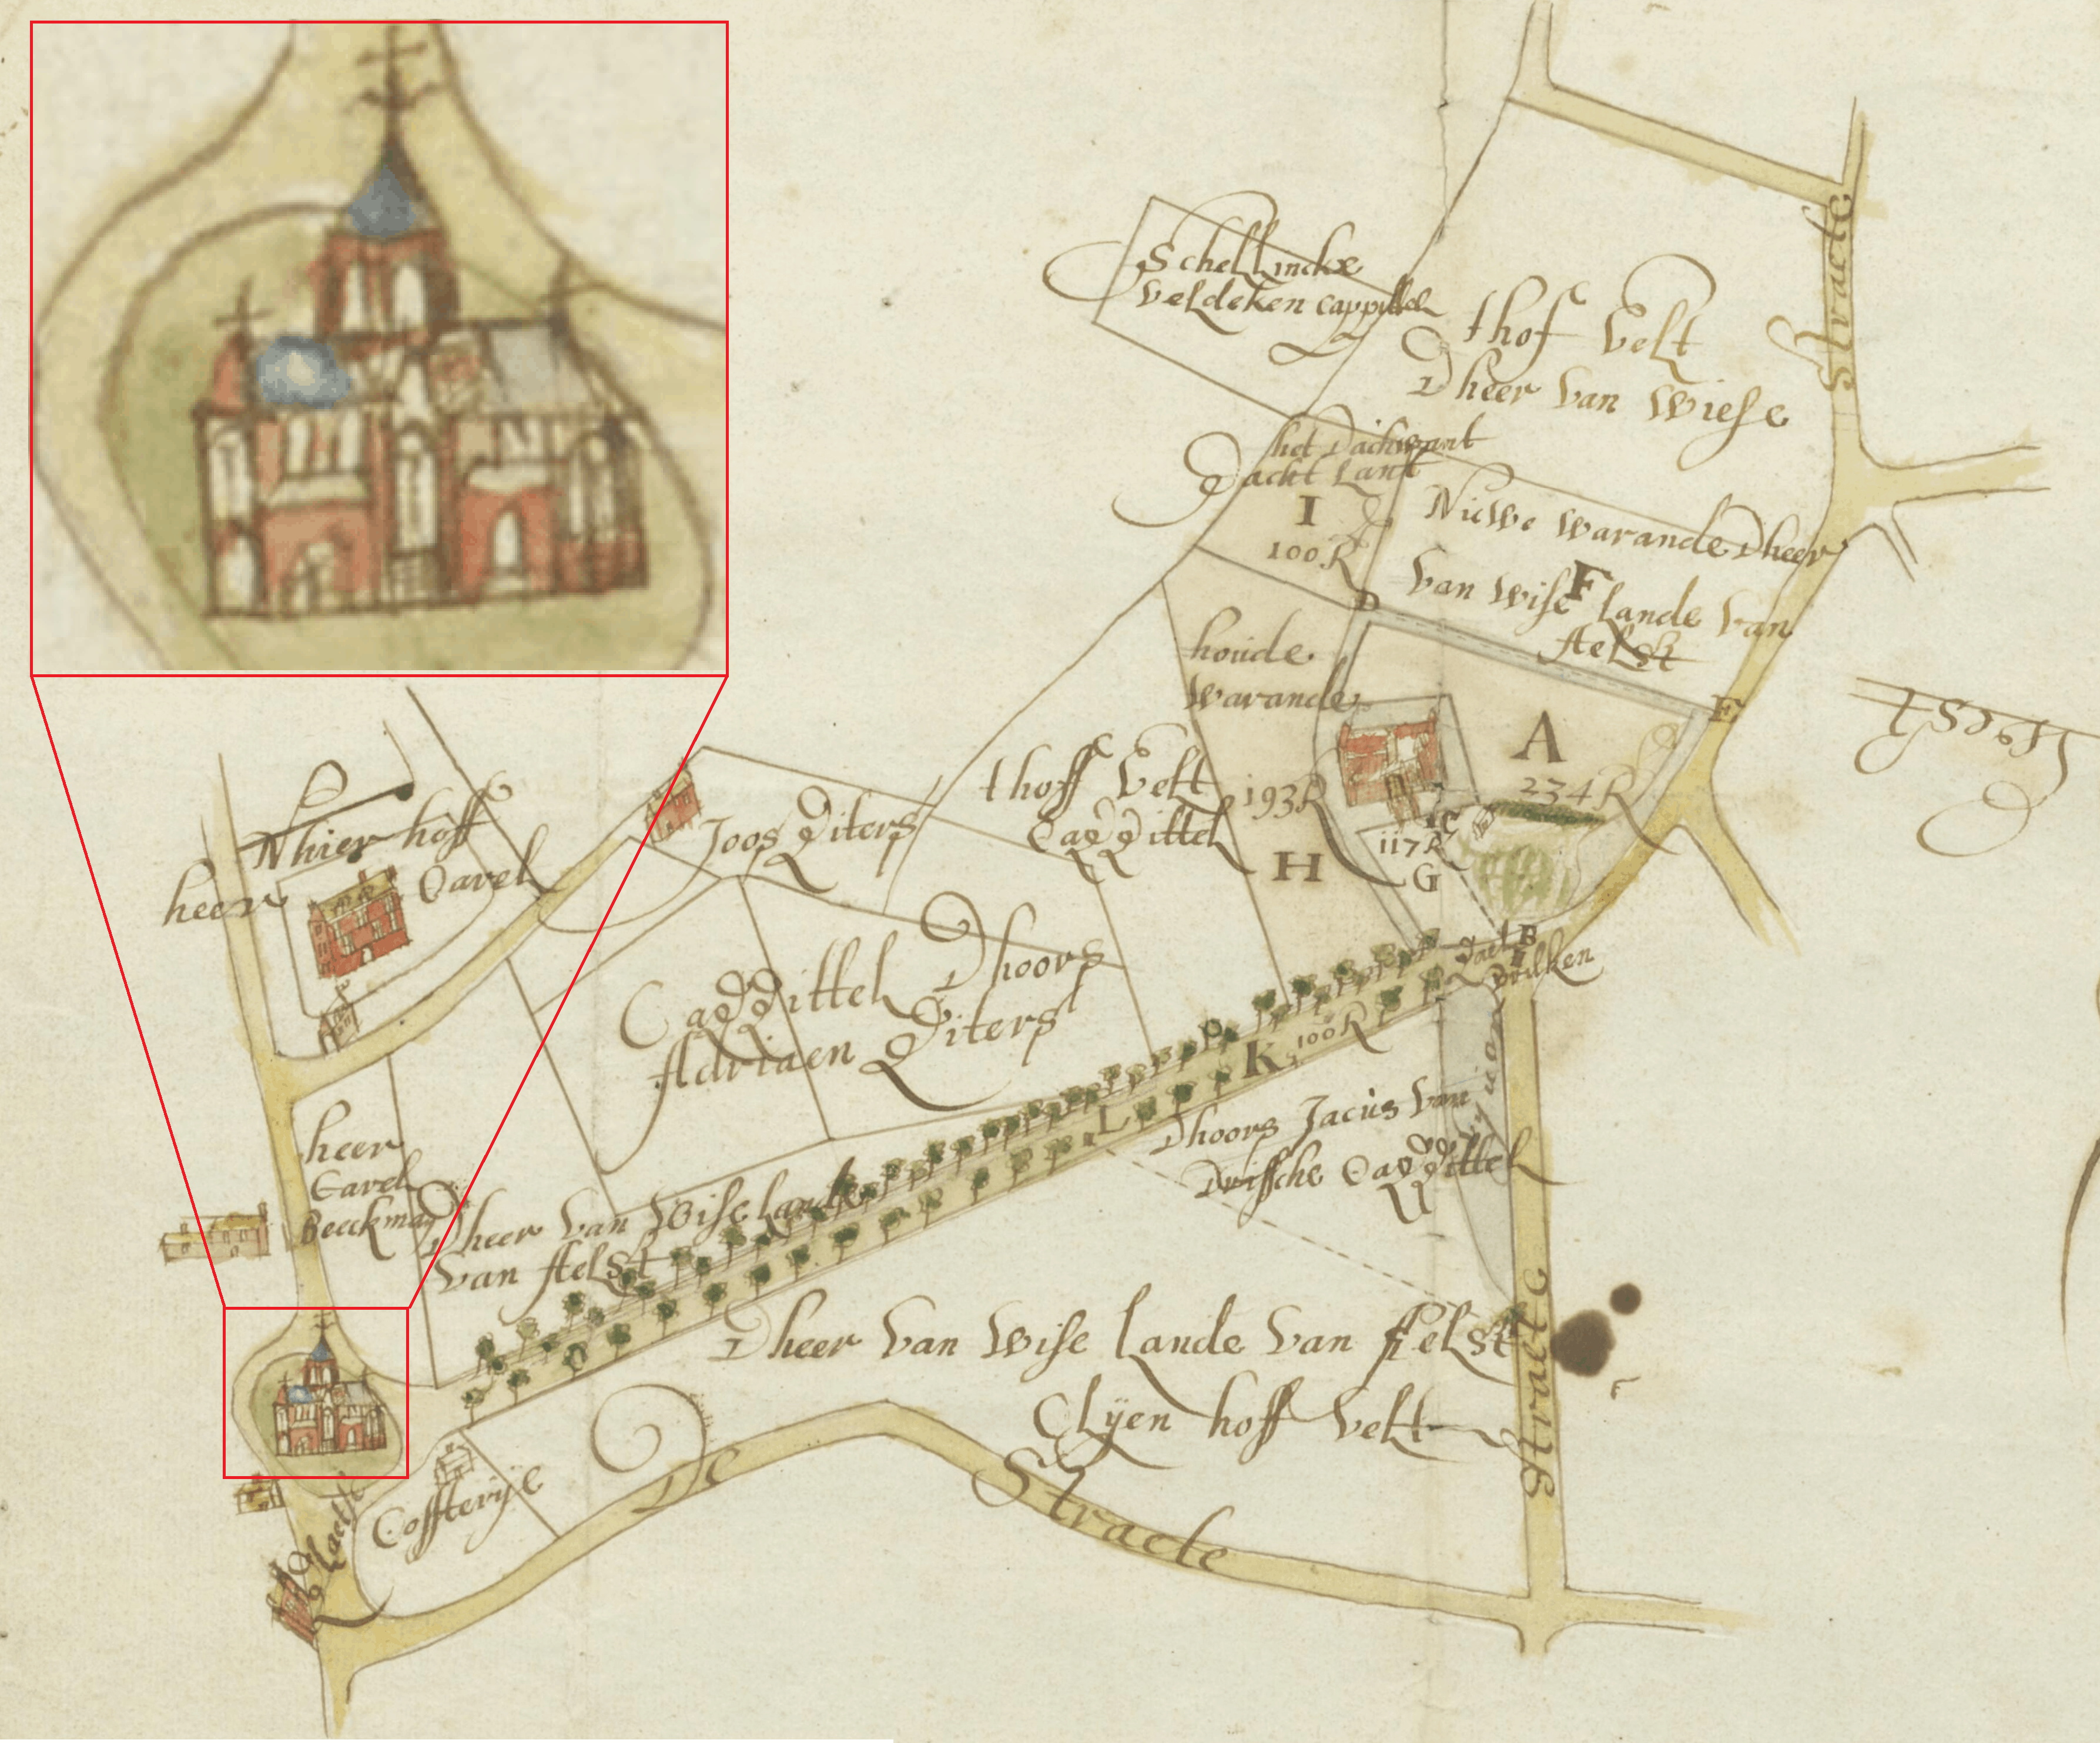 Schellincke
veldeken cappittel
thof velt
Dheer van Wiese
Straete
het Dachwant
Dacht Lant
I
100 R
Nuwe warande Dheer
van wise F lande van
Aelst
D
E
houde
warande
A
234 R
193 R
H
C
117 R
G
thoff velt
Cappittel
Joos Piters
Whier hoff
heer Carel
Cappittel Dhoors
Adriaen Piters
B
K 100 R
L
Dhoors Jacus van
Cappittel
heer
Carel
Beeckman
Dheer van Wise lande
van Aelst
Dheer van Wise lande van Aelst
Clijen hoff velt
Straete
Cofsterije
Plaets
De Straete